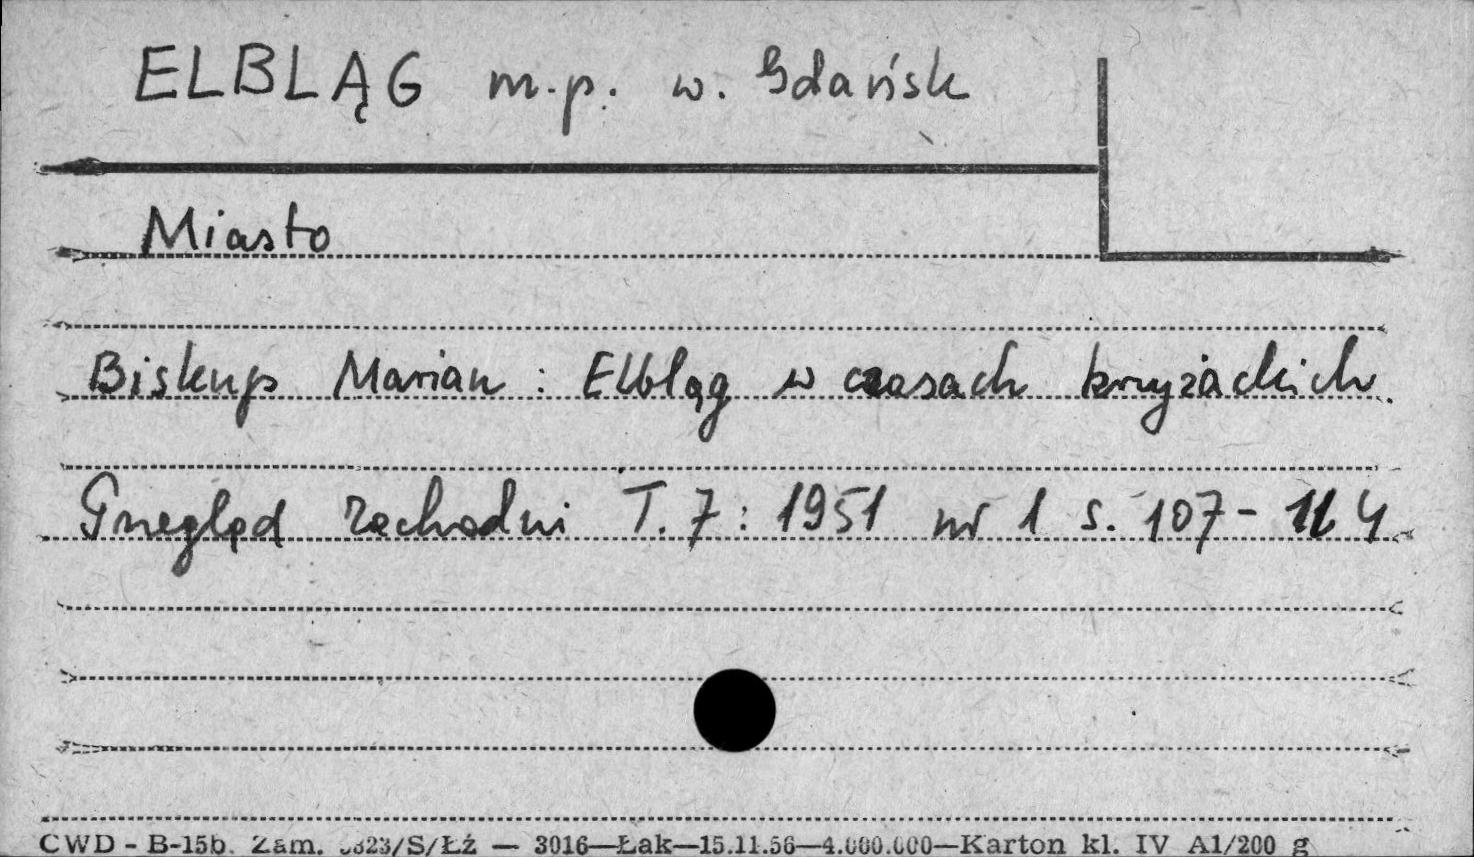 ELBLĄG m.p. w. Gdańsk
Miasto
Biskup Marian : Elbląg w czasach krzyżackich.
Przegląd Zachodni T. 7 : 1951 nr 1 s. 107 - 114
CWD - B-15b. Zam. 3323/S/Łź — 3016—Łak—15.11.56—4.000.000—Karton kl. IV A1/200 g